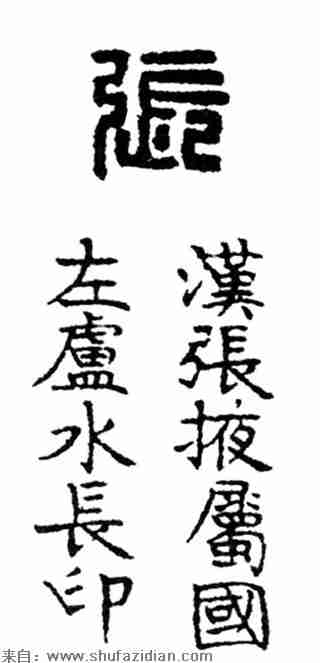 張
漢張掖屬國
左盧水長印
来自：www.shufazidian.com